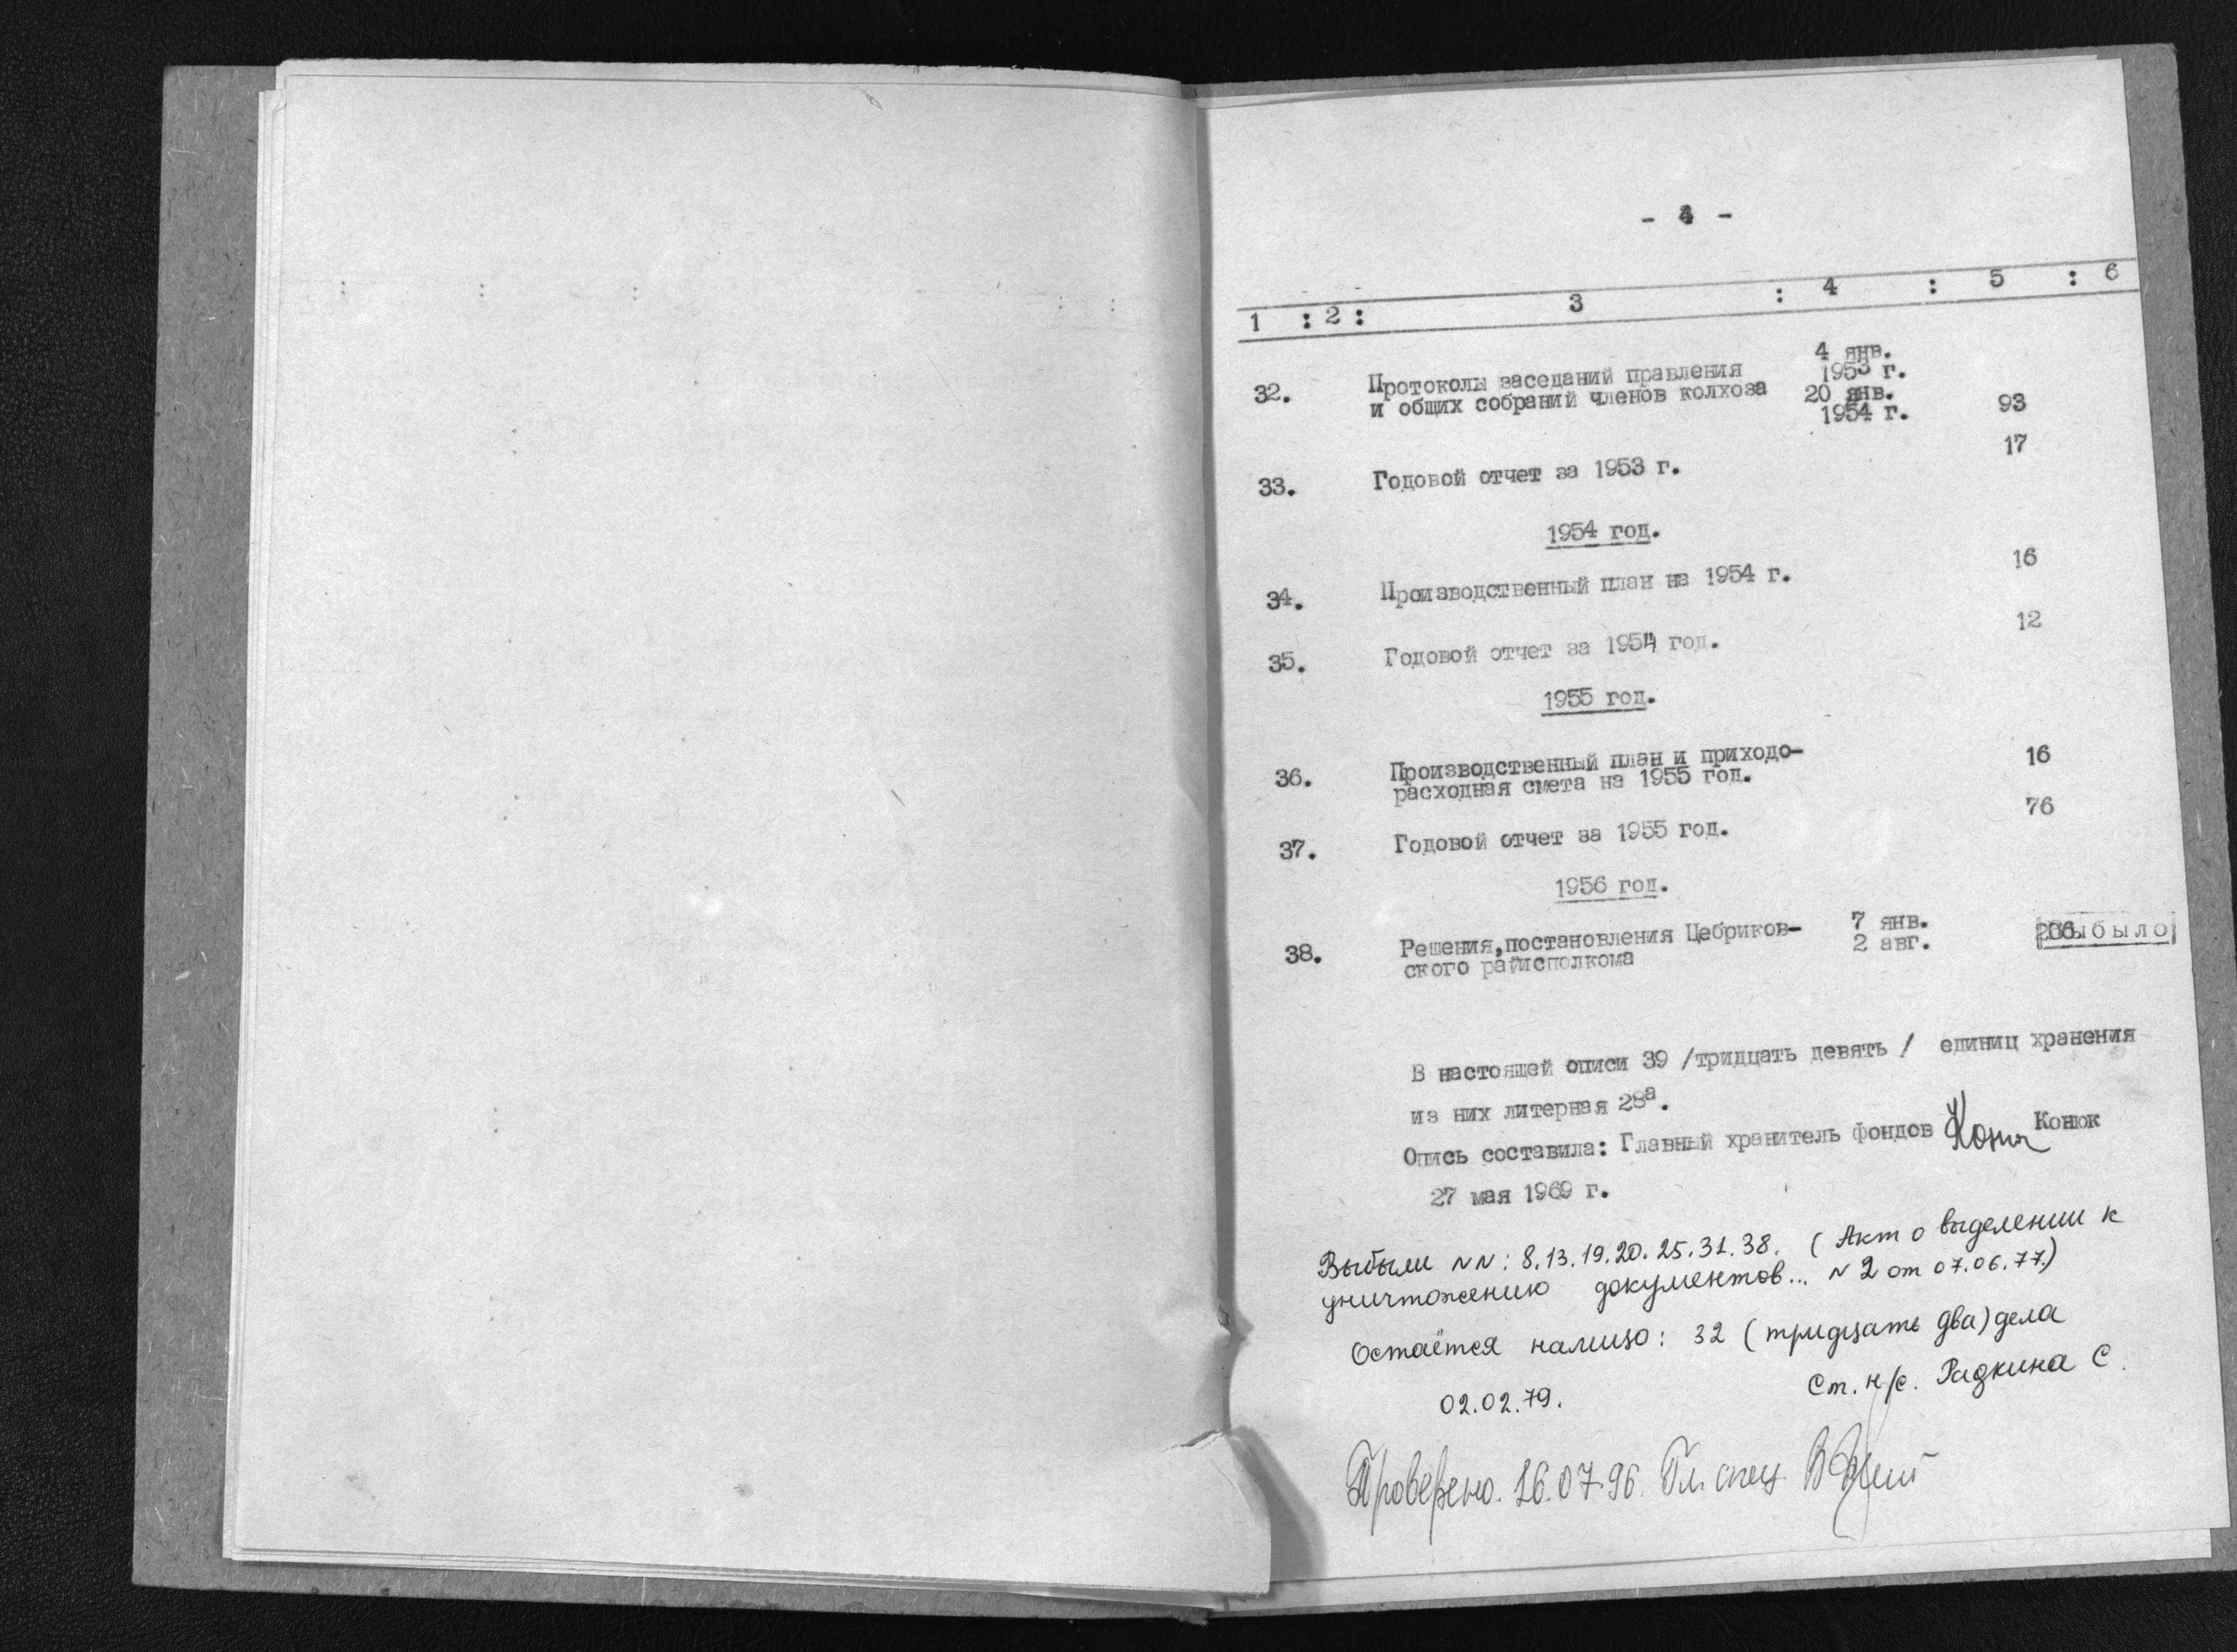 - 4 -
1 : 2 : 3 : 4 : 5 : 6
32. Протоколы заседаний правления и общих собраний членов колхоза 4 янв. 1953 г. 20 янв. 1954 г. 93
33. Годовой отчет за 1953 г. 17
1954 год.
34. Производственный план на 1954 г. 16
35. Годовой отчет за 1954 год. 12
1955 год.
36. Производственный план и приходо-
расходная смета на 1955 год. 16
37. Годовой отчет за 1955 год. 76
1956 год.
38. Решения,постановления Цебриков- 7 янв.
ского райисполкома 2 авг. Выбыло
В настоящей описи 39 /тридцать девять/ единиц хранения
из них литерная 28а.
Опись составила: Главный хранитель фондов Конюк
27 мая 1969 г.
Выбыли NN: 8.13.19.20.25.31.38. (Акт о выделении к
уничтожению документов... N 2 от 07.06.77.)
Остаётся налицо: 32 (тридцать два) дела
02.02.79. Ст. н/с. Радкина С.
Проверено. 16.07.96. Гл. спец.